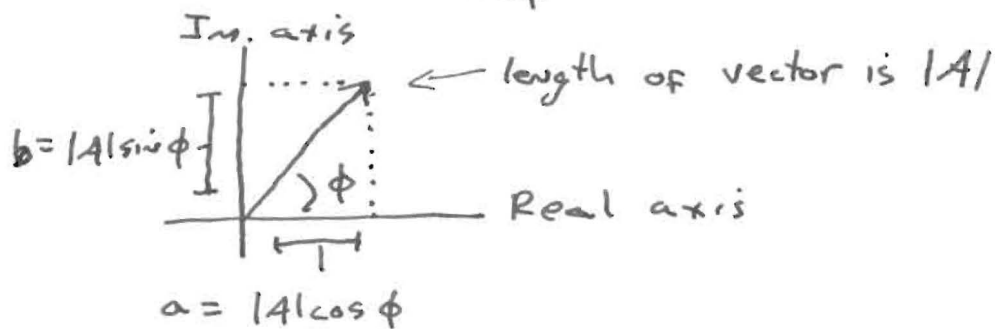 Im. axis
length of vector is |A|
b = |A| sin ϕ
ϕ
Real axis
a = |A| cos ϕ